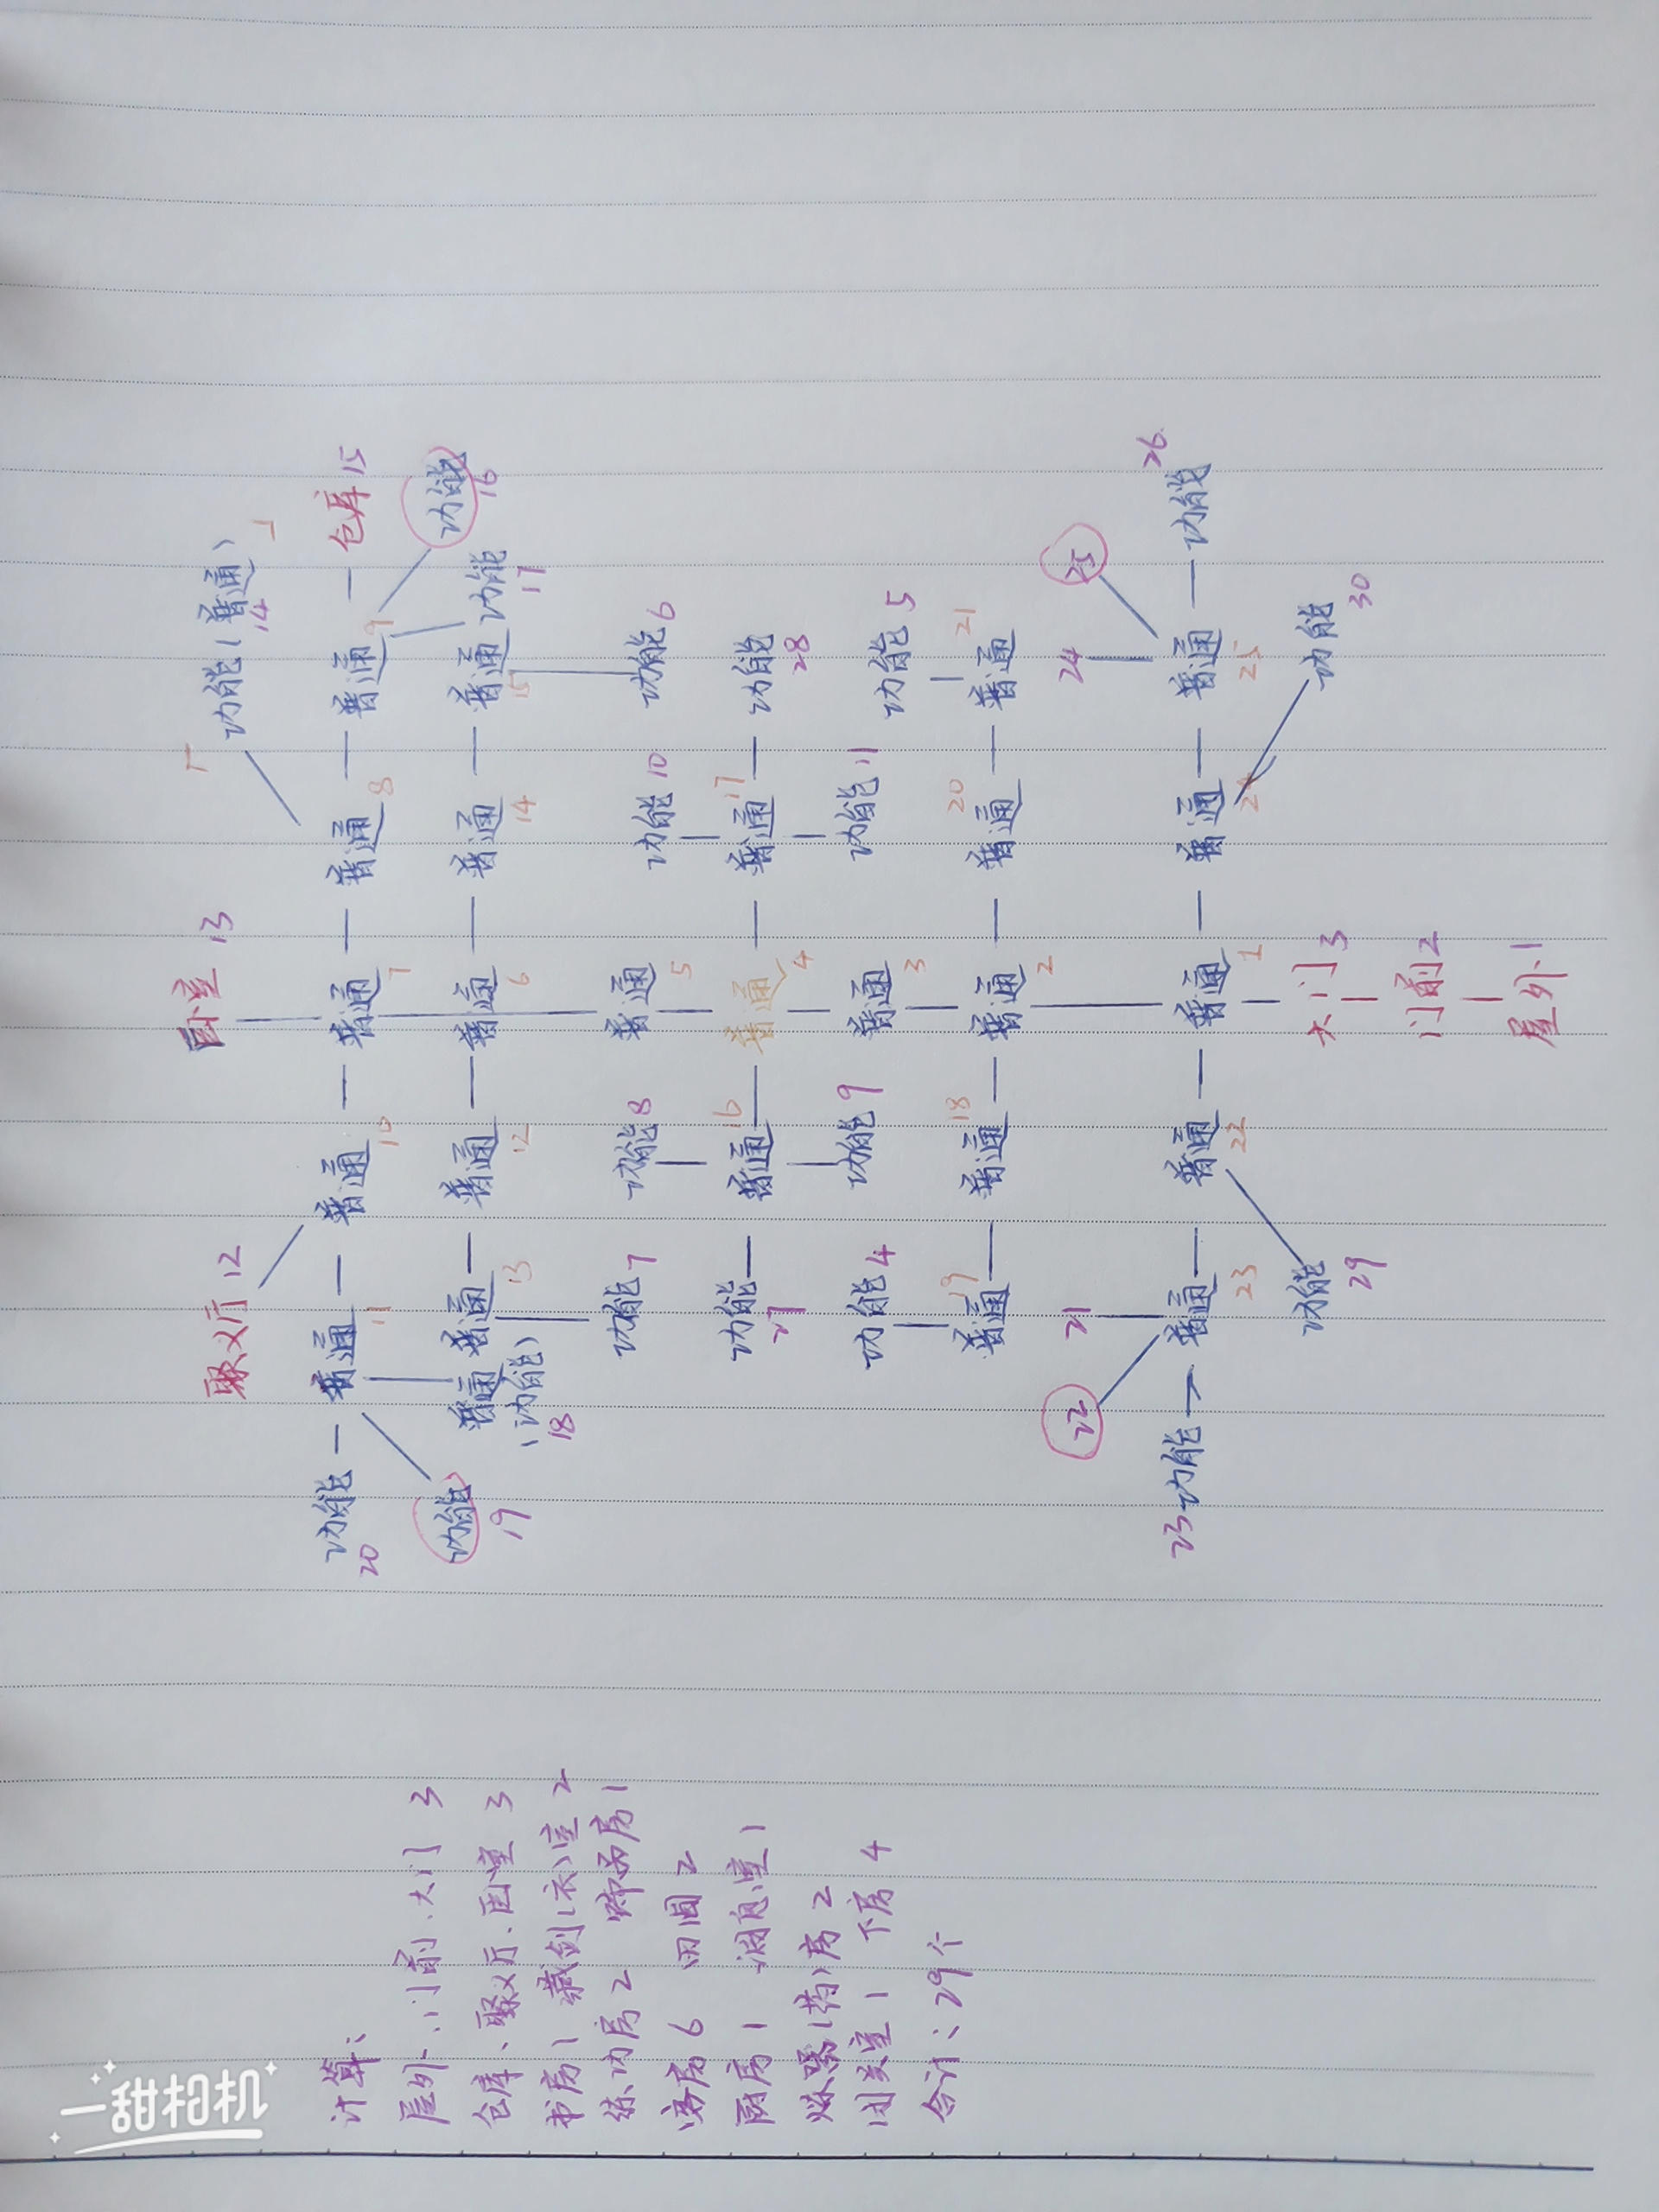 计算:
屋外、门前、大门 3
仓库、聚义厅、卧室 3
书房 1 藏剑(衣)室 2
练功房 2 账房 1
客房 6 田园 2
厨房 1 消息室 1
炼器(药)房 2
闭关室 1 下房 4
合计:29个
聚义厅 12
卧室 13
「功能(普通)」
14
功能 — 普通 — 普通 — 普通 — 普通 — 普通 — 仓库 15
20 11 10 7 8 9
功能 普通 普通 — 普通 — 普通 — 普通 — 普通 功能 功能
19 (功能) 13 12 6 14 15 17 16
18
功能 7 功能 8 普通 功能 10 功能 6
5
功能 — 普通 — 普通 — 普通 — 功能
27 16 4 17 28
功能 4 功能 9 普通 功能 11 功能 5
3
普通 — 普通 — 普通 — 普通 — 普通
19 18 2 20 21
22 21 24 25
23 功能 — 普通 — 普通 — 普通 — 普通 — 普通 — 功能 26
23 22 1 24 25
功能 大门 3 功能
29 30
门前 2
屋外 1
一甜相机